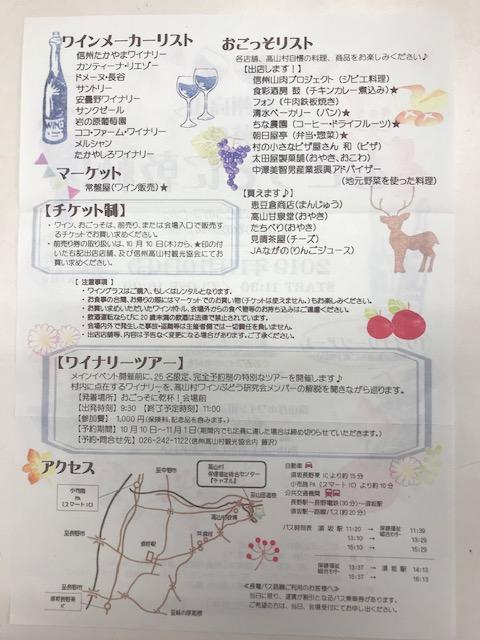 ワインメーカーリスト
信州たかやまワイナリー
カンティーナ・リエゾー
ドメーヌ・長谷
サントリー
安曇野ワイナリー
サンクゼール
岩の原葡萄園
ココ・ファーム・ワイナリー
メルシャン
たかやしろワイナリー
マーケット
常盤屋(ワイン販売)★
おごっそリスト
各店舗、高山村自慢の料理、商品をお楽しみください♪
【出店します!】
信州山肉プロジェクト(ジビエ料理)
食彩酒房 鼓(チキンカレー煮込み)★
フォン(牛肉鉄板焼き)
清水ベーカリー(パン)★
ちな農園(コーヒー・ドライフルーツ)★
朝日屋亭(弁当・惣菜)★
村の小さなピザ屋さん 和(ピザ)
太田屋製菓舗(おやき、おこわ)
中澤美智男産業振興アドバイザー
(地元野菜を使った料理)
【買えます♪】
恵豆倉商店(まんじゅう)
高山甘泉堂(おやき)
たちべり(おやき)
見晴茶屋(チーズ)
JAながの(りんごジュース)
【チケット制】
・ワイン、おごっそは、前売り、または会場入口で販売するチケットでお買い求めください。
・前売り券の取り扱いは、10月10日(木)から、★印の付いた右記出店店舗、及び信州高山村観光協会にてお買い求めください。
【 注意事項 】
・ワイングラスはご購入、もしくはレンタルとなります。
・お食事の合間、お帰りの際にはマーケットでのお買い物(チケットは使えません。)もお楽しみください。
・お買い求めいただいたワインボトル、会場外からの食べ物等のお持ち込みはご遠慮ください。
・飲酒運転ならびに20歳未満の飲酒は法律で禁止されています。
・会場内外で発生した事故・盗難等は主催者側では一切責任を負いません。
・出店店舗等、内容は予告なく変更になる場合があります。ご了承ください。
【ワイナリーツアー】
メインイベント開催前に、26名限定、完全予約制の特別なツアーを開催します♪
村内に点在するワイナリーを、高山村ワインぶどう研究会メンバーの解説を聞きながら巡ります。
【発着場所】おごっそに乾杯!会場前
【出発時刻】9:30 【終了予定時刻】11:00
【参加費】 1,000円(保険料、記念品を含みます。)
【予約期間】10月10日~11月1日(期間内でも定員に達した場合は締め切らせていただきます。)
【予約・問合せ先】026-242-1122(信州高山村観光協会内 藤沢)
アクセス
至中野市
高山村
保健福祉総合センター
【チャオル】
小布施
PA
(スマートIC)
至山田温泉
高山村役場
須坂駅
至長野市
至長野市
須坂長野東
IC
自動車
須坂長野東ICより約15分
小布施PA(スマートIC)より約10分
公共交通機関
長野駅~長野電鉄(30分)~須坂駅
須坂駅~路線バス(約20分)
バス時刻表 須坂駅 11:20 → 保健福祉総合センター 11:39
13:10 → 13:29
15:10 → 15:29
保健福祉総合センター 13:37 → 須坂駅 14:13
15:37 → 16:13
<長電バス路線ご利用のお客様へ>
当日に限り、運賃が割引となるバス乗車券があります。
ご希望の方は、当日、会場受付にてお申し出ください。